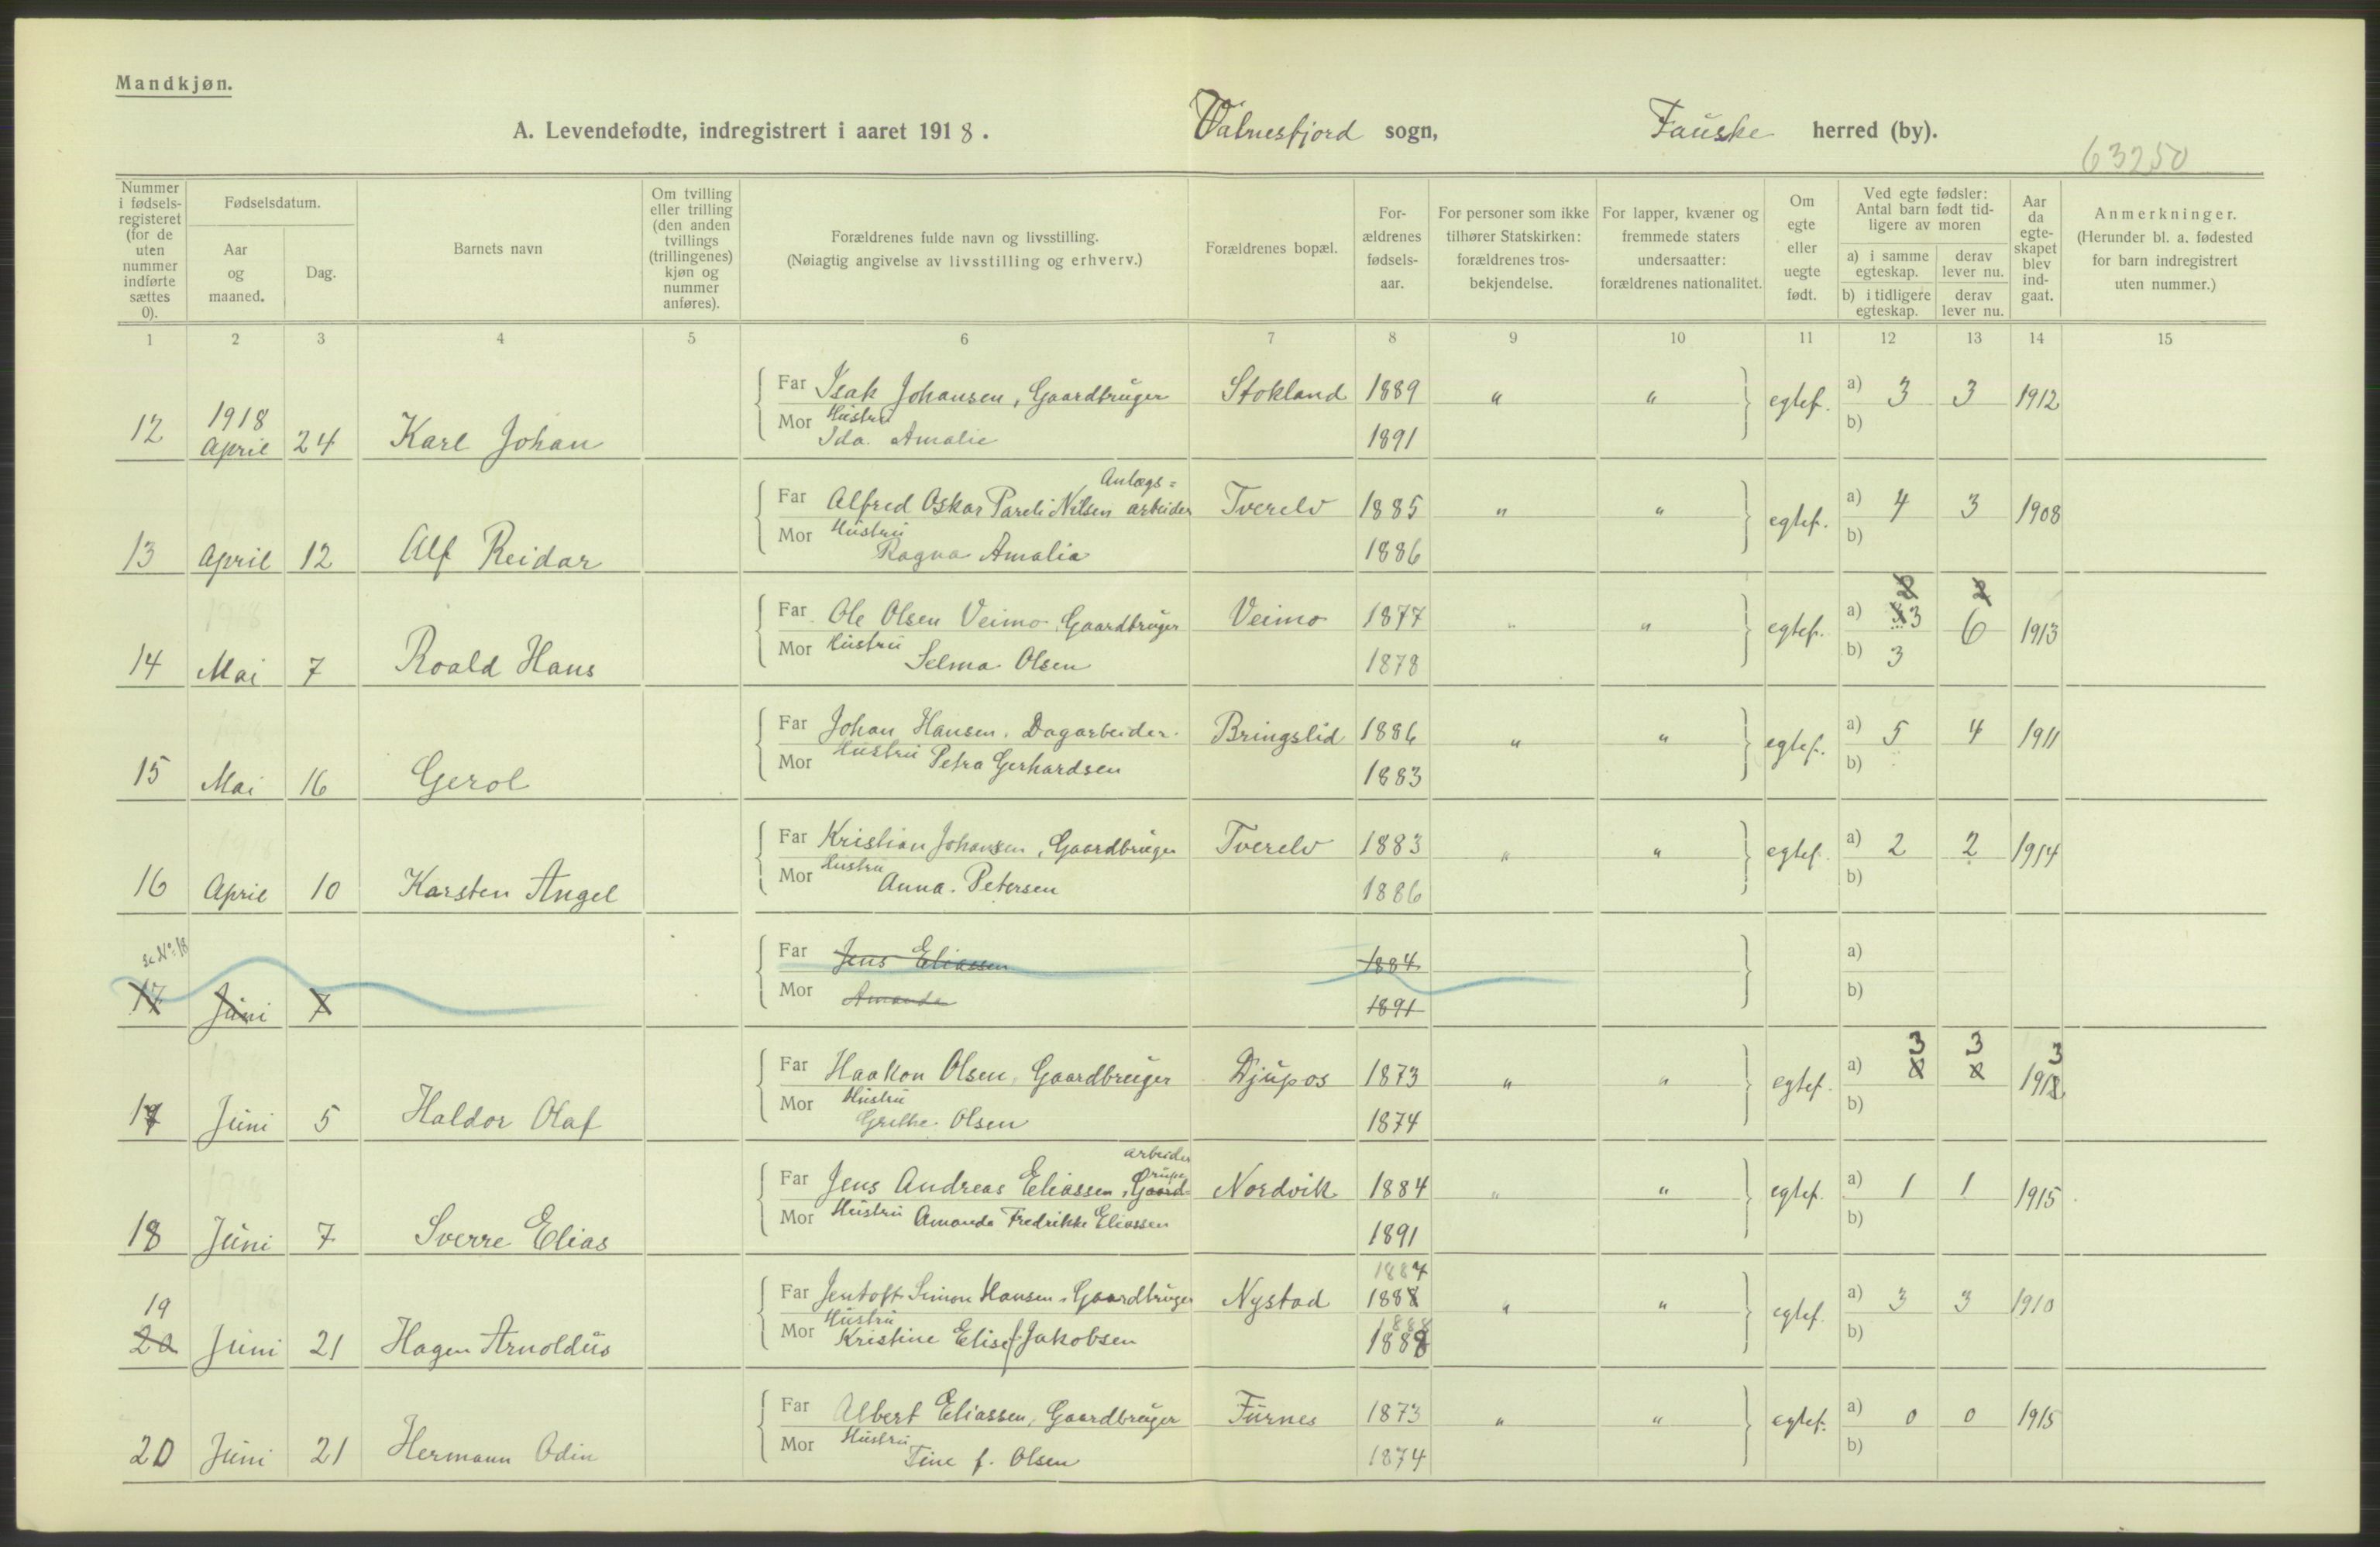 Mandkjøn.
A. Levendefødte, indregistrert i aaret 1918. Valnesfjord sogn, Fauske herred (by).
63250
Nummer i fødselsregisteret (for de uten nummer indførte sættes 0).
Fødselsdatum.
Aar og maaned.
Dag.
Barnets navn
Om tvilling eller trilling (den anden tvillings (trillingenes) kjøn og nummer anføres).
Forældrenes fulde navn og livsstilling.
(Nøiagtig angivelse av livsstilling og erhverv.)
Forældrenes bopæl.
For-ældrenes fødsels-aar.
For personer som ikke tilhører Statskirken: forældrenes tros-bekjendelse.
For lapper, kvæner og fremmede staters undersaatter: forældrenes nationalitet.
Om egte eller uegte født.
Ved egte fødsler: Antal barn født tid-ligere av moren
a) i samme egteskap.
derav lever nu.
b) i tidligere egteskap.
derav lever nu.
Aar da egte-skapet blev ind-gaat.
Anmerkninger.
(Herunder bl. a. fødested for barn indregistrert uten nummer.)
1 2 3 4 5 6 7 8 9 10 11 12 13 14 15
12 1918 April 24 Karl Johan Far Isak Johansen, Gaardbruger Stokland 1889 " " egtef. a) 3 3 1912
Mor Hustru Ida Amalie 1891 b)
13 April 12 Alf Reidar Far Alfred Oskar Pareli Nilsen Anlægs= arbeider Tverelv 1885 " " egtef. a) 4 3 1908
Mor Hustru Ragna Amalia 1886 b)
14 Mai 7 Roald Hans Far Ole Olsen Veimo, Gaardbruger Veimo 1877 " " egtef. a) 3 6 1913
Mor Hustru Selma Olsen 1878 b) 3
15 Mai 16 Gerol Far Johan Hansen, Dagarbeider. Bringslid 1886 " " egtef. a) 5 4 1911
Mor Hustru Petra Gerhardsen 1883 b)
16 April 10 Karsten Angel Far Kristian Johansen, Gaardbruger Tverelv 1883 " " egtef. a) 2 2 1914
Mor Hustru Anna Petersen 1886 b)
se No 18
17 Juni 7 Far Jens Eliassen 1884 a)
Mor Amanda 1891 b)
17 Juni 5 Haldor Olaf Far Haakon Olsen, Gaardbruger Djupos 1873 " " egtef. a) 3 3 1913
Mor Hustru Grethe Olsen 1874 b)
18 Juni 7 Sverre Elias Far Jens Andreas Eliassen, Grube arbeider Nordvik 1884 " " egtef. a) 1 1 1915
Mor Hustru Amanda Fredrikke Eliassen 1891 b)
19 20 Juni 21 Hagen Arnoldus Far Jentoft Simon Hansen, Gaardbruger Nystad 1884 188 " " egtef. a) 3 3 1910
Mor Hustru Kristine Elise f. Jakobsen 1888 1888 b)
20 Juni 21 Hermann Odin Far Albert Eliassen, Gaardbruger Furnes 1873 " " egtef. a) 0 0 1915
Mor Hustru Tine f. Olsen 1874 b)